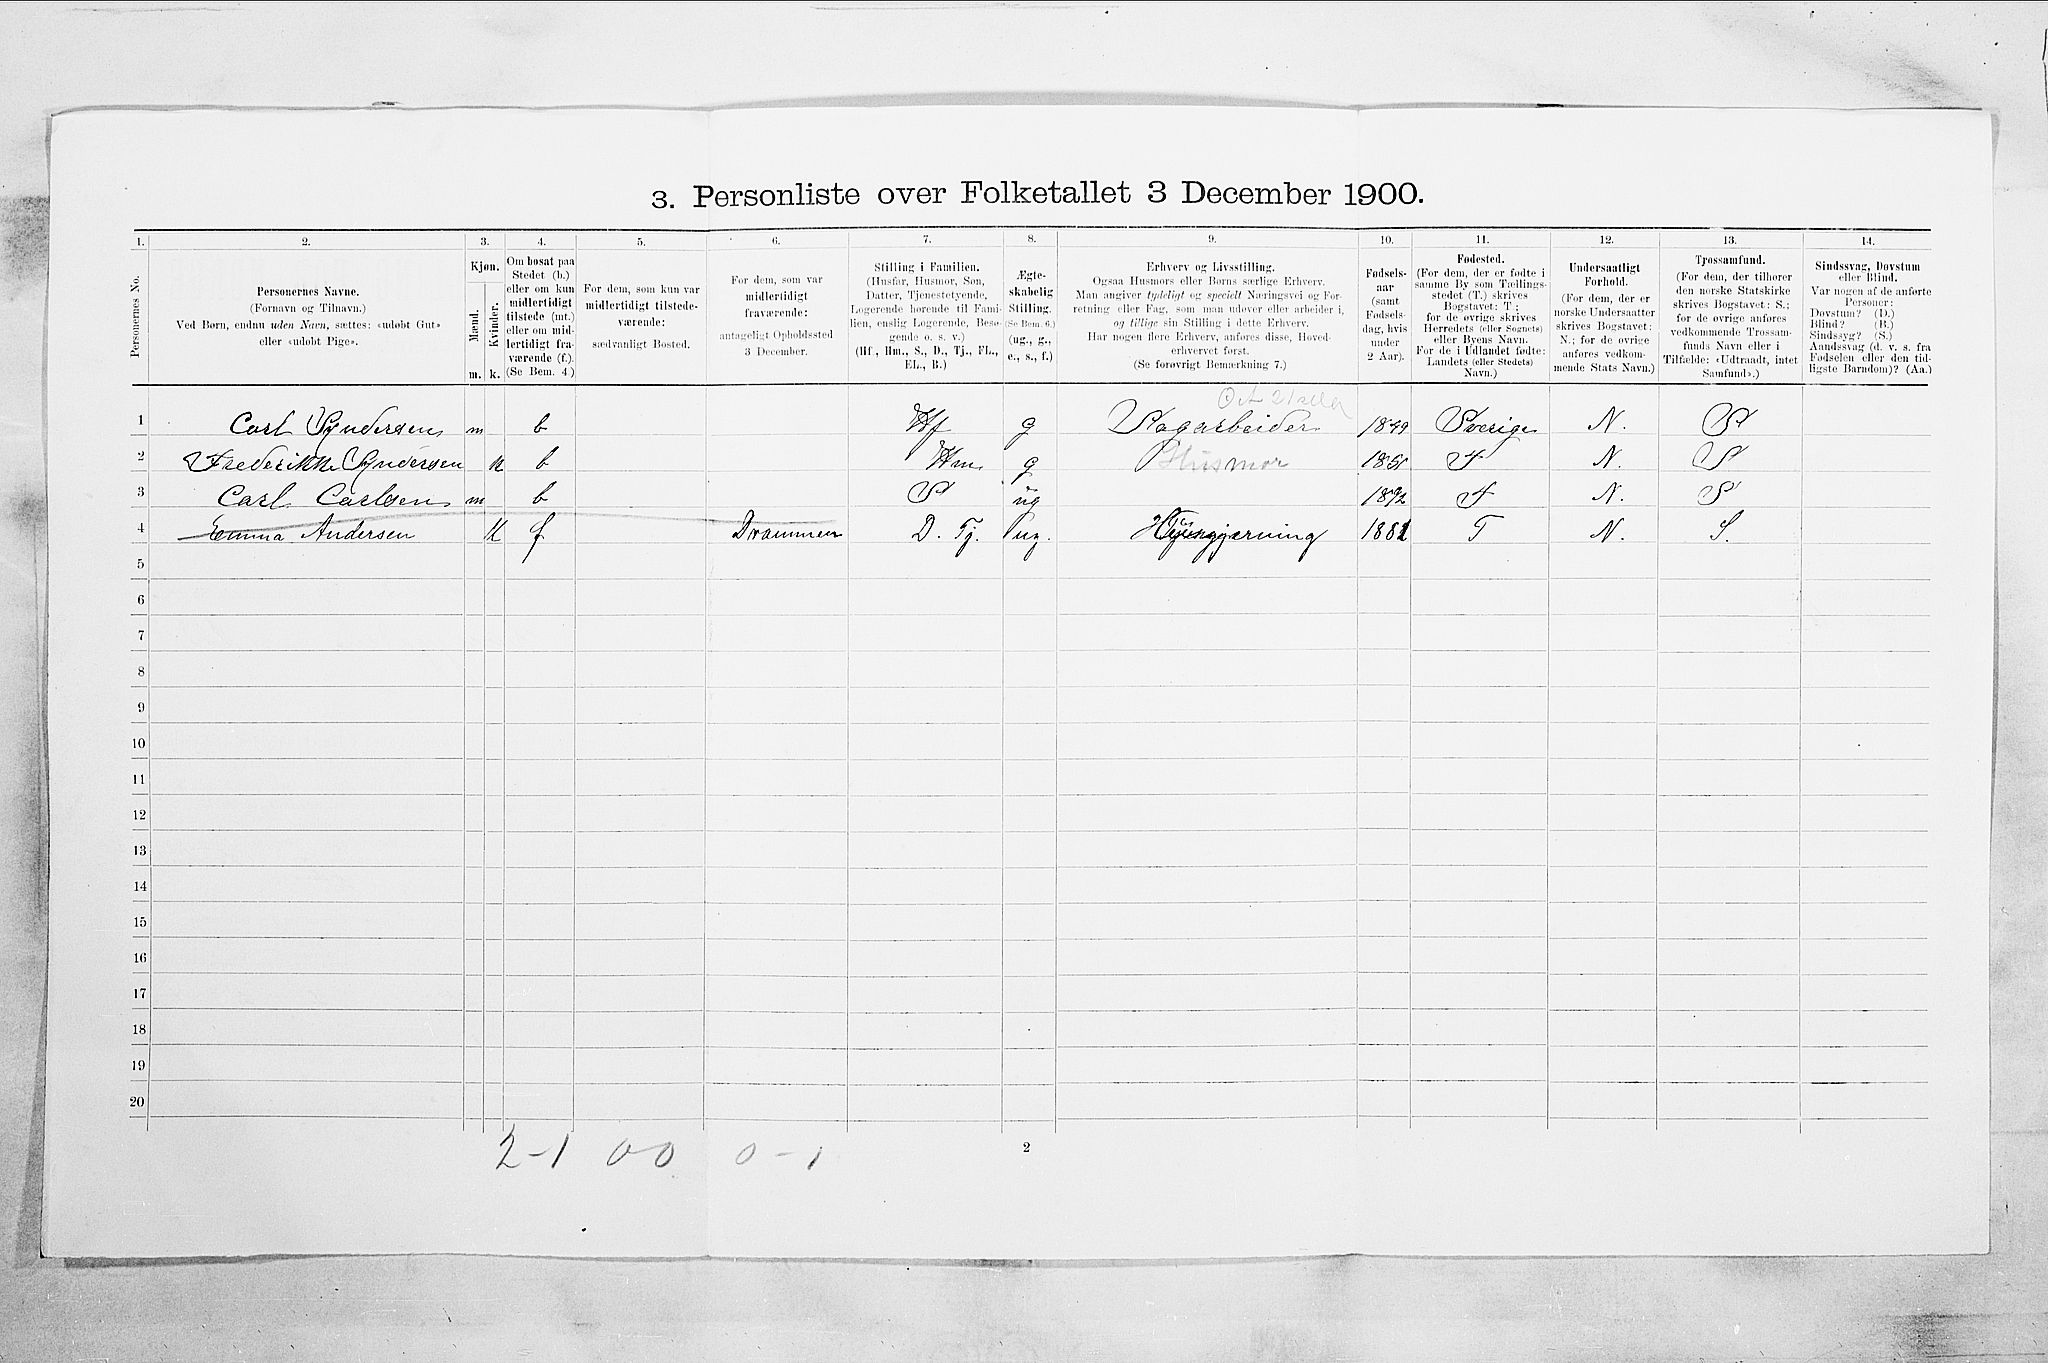 3. Personliste over Folketallet 3 December 1900.
1. 2. 3. 4. 5. 6. 7. 8. 9. 10. 11. 12. 13. 14.
Personernes No.
Personernes Navne.
(Fornavn og Tilnavn.)
Ved Børn, endnu uden Navn, sættes: «udøbt Gut»
eller «udøbt Pige».
Kjøn.
Mænd.
Kvinder.
m. k.
Om bosat paa
Stedet (b.)
eller om kun
midlertidigt
tilstede (mt.)
eller om mid-
lertidigt fra-
værende (f.)
(Se Bem. 4.)
For dem, som kun var
midlertidigt tilstede-
værende:
sædvanligt Bosted.
For dem, som var
midlertidigt
fraværende:
antageligt Opholdssted
3 December.
Stilling i Familien.
(Husfar, Husmor, Søn,
Datter, Tjenestetyende,
Logerende hørende til Fami-
lien, enslig Logerende, Besø-
gende o. s. v.)
(Hf., Hm., S., D., Tj., FL.,
EL., B.)
Ægte-
skabelig
Stilling.
(Se Bem. 6.)
(ug., g.,
e., s., f.)
Erhverv og Livsstilling.
Ogsaa Husmors eller Børns særlige Erhverv.
Man angiver tydeligt og specielt Næringsvei og For-
retning eller Fag, som man udøver eller arbeider i,
og tillige sin Stilling i dette Erhverv.
Har nogen flere Erhverv, anføres disse, Hoved-
erhvervet først.
(Se forøvrigt Bemærkning 7.)
Fødsels-
aar
(samt
Fødsels-
dag, hvis
under
2 Aar).
Fødested.
(For dem, der er fødte i
samme By som Tællings-
stedet (T.) skrives
Bogstavet: T;
for de øvrige skrives
Herredets (eller Sognets)
eller Byens Navn.
For de i Udlandet fødte:
Landets (eller Stedets)
Navn.)
Undersaatligt
Forhold.
(For dem, der er
norske Undersaatter
skrives Bogstavet:
N.; for de øvrige
anføres vedkom-
mende Stats Navn.)
Trossamfund.
(For dem, der tilhører
den norske Statskirke
skrives Bogstavet: S.;
for de øvrige anføres
vedkommende Trossam-
funds Navn eller i
Tilfælde: «Udtraadt, intet
Samfund».)
Sindssvag, Døvstum
eller Blind.
Var nogen af de anførte
Personer:
Døvstum? (D.)
Blind? (B.)
Sindssyg? (S.)
Aandssvag (d. v. s. fra
Fødselen eller den tid-
ligste Barndom)? (Aa.)
1 Carl Syndersen m b Hf g 1849 Sverige N. S
2 Frederikke Syndersen k b Hm g Husmor 1851 T N. S
3 Carl Carlsen m b S ug 1892 T N. S
4 Emma Andersen k f Drammen D. Tj. ug. 1881 T N. S.
5
6
7
8
9
10
11
12
13
14
15
16
17
18
19
20
2-1 0-0 0-1
2